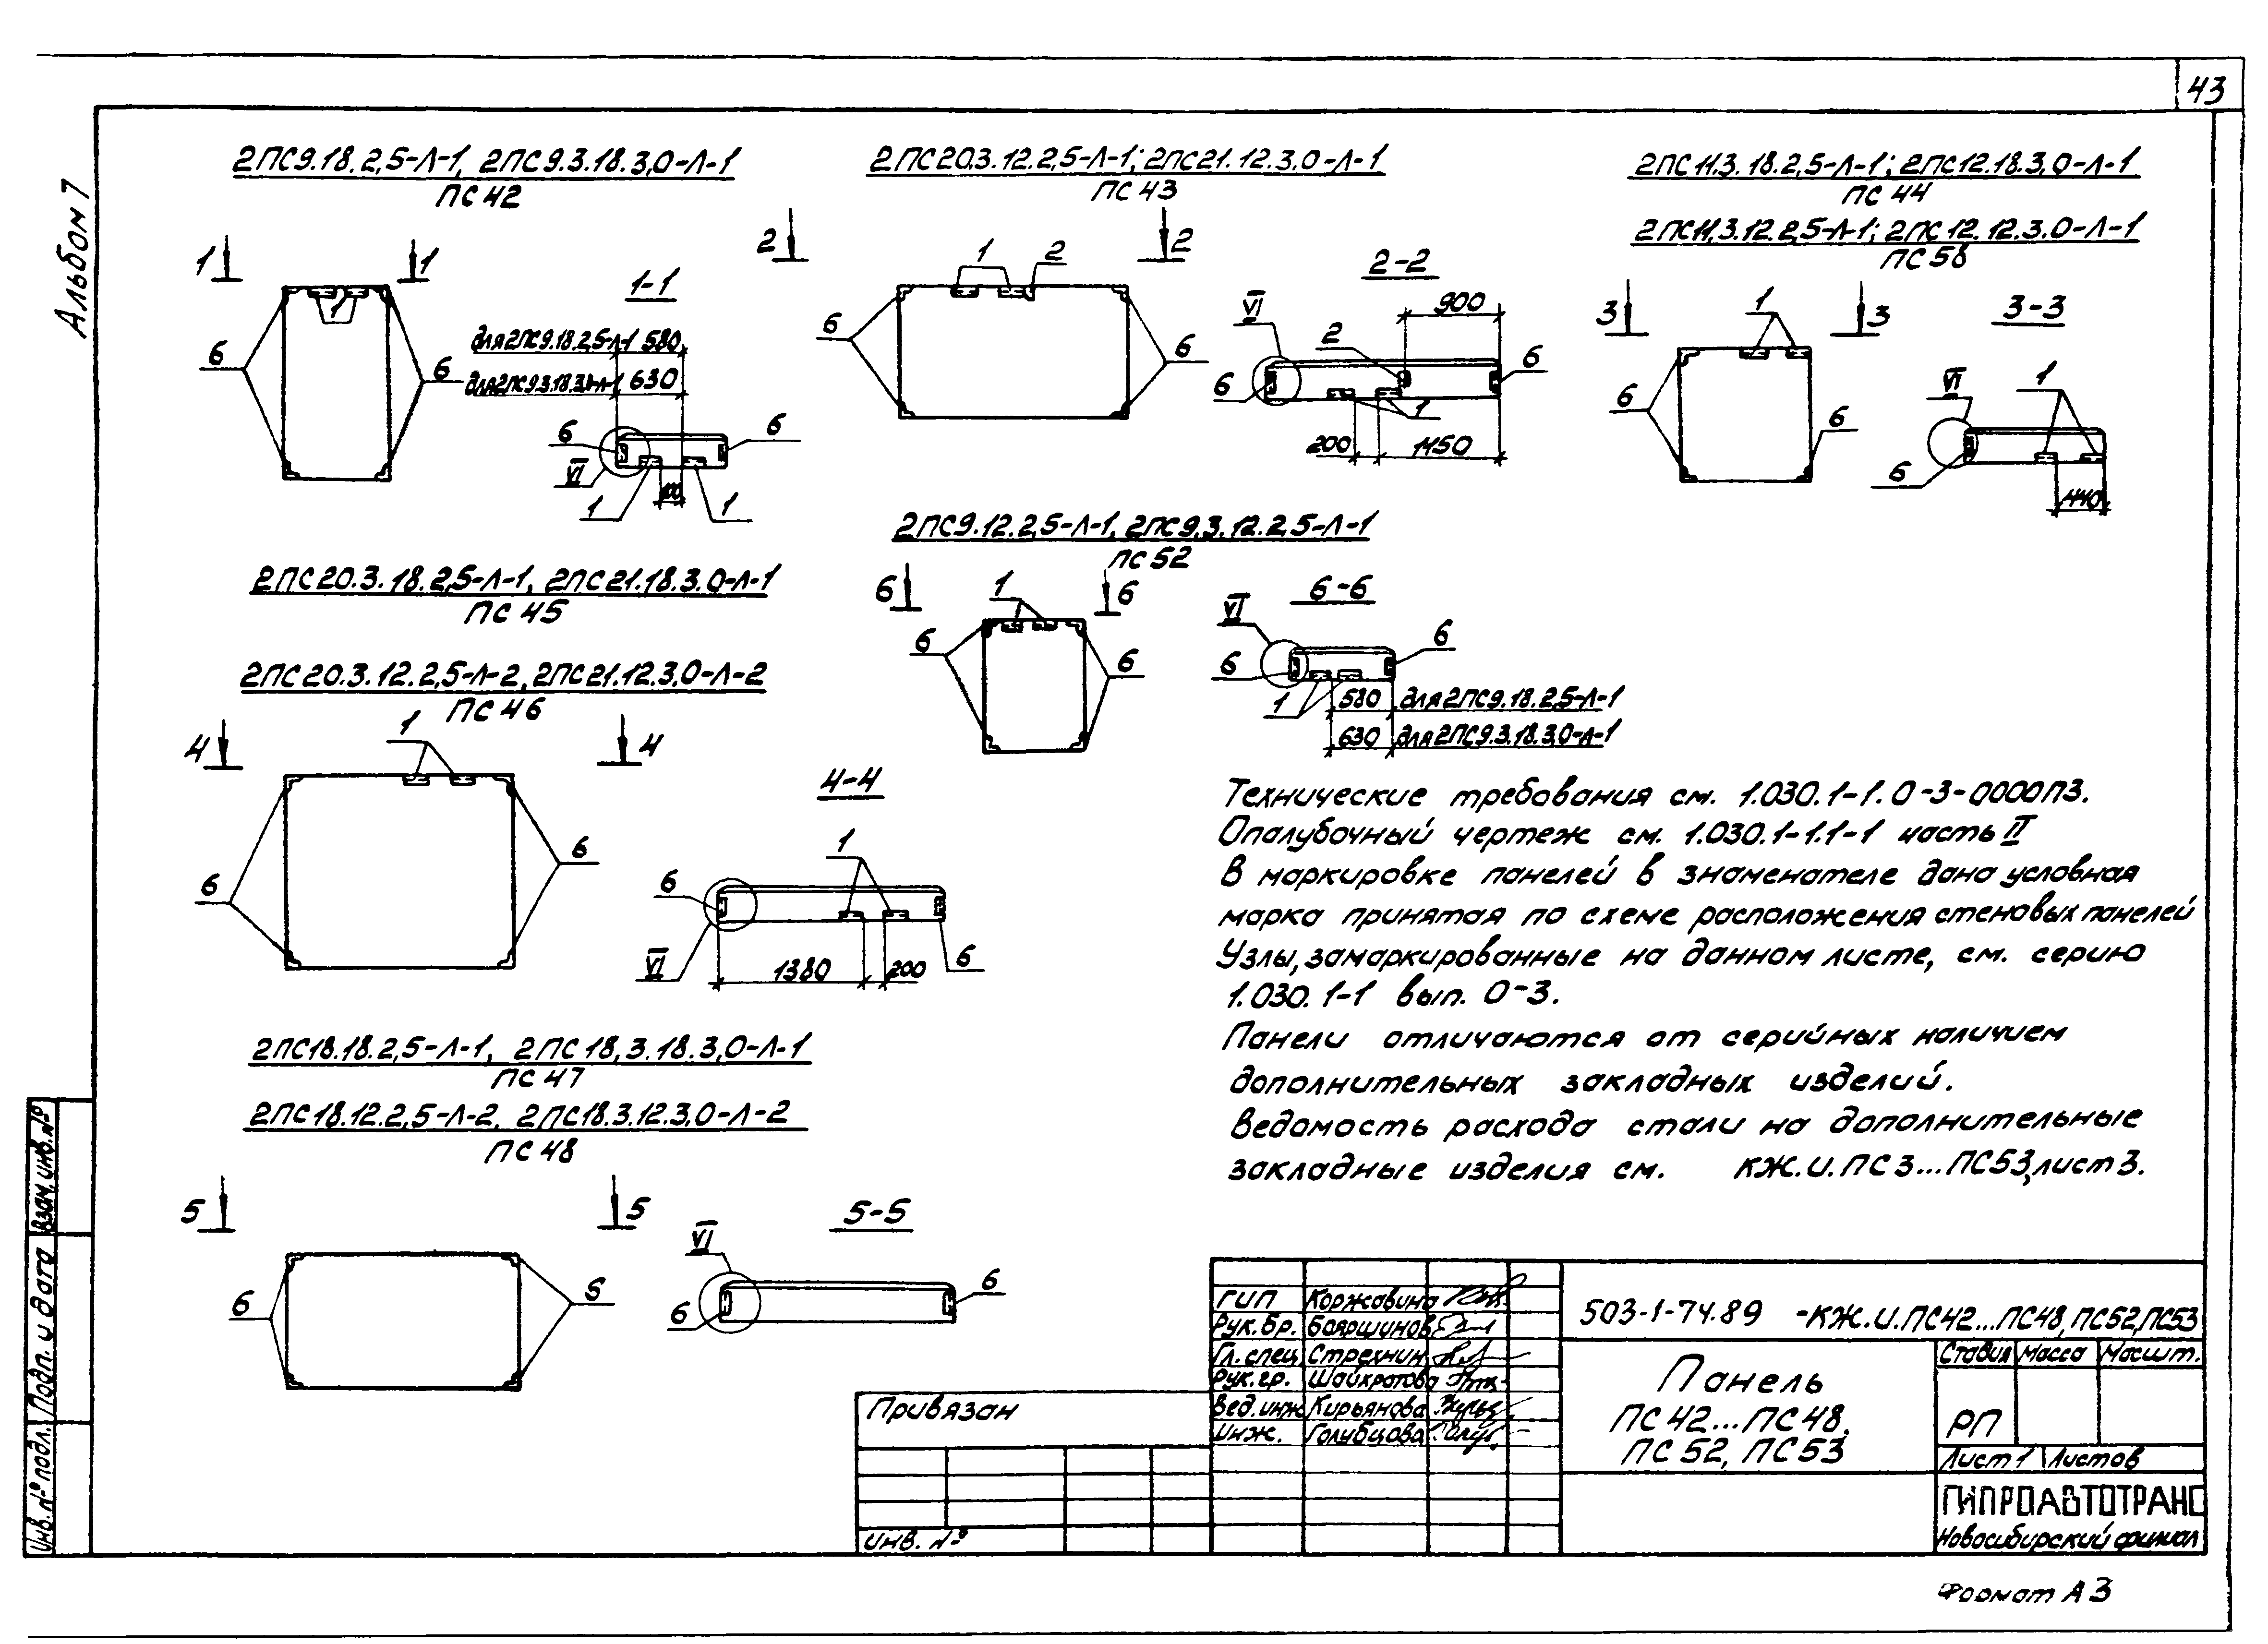 43
Альбом 7
2ПС9.18.2,5-Л-1, 2ПС9.3.18.3,0-Л-1
ПС42
1 1
1
6 6
1-1
для 2ПС9.18.2,5-Л-1 580
для 2ПС9.3.18.3,0-Л-1 630
6 6
VI
1 1
2ПС20.3.12.2,5-Л-1; 2ПС21.12.3,0-Л-1
ПС43
2 2
1 2
6 6
2-2
VI 900
2 6
6
1
200 1150
2ПС11.3.18.2,5-Л-1; 2ПС12.18.3,0-Л-1
ПС44
2ПС11,3.12.2,5-Л-1; 2ПС12.12.3.0-Л-1
3 3
1
6 6
3-3
VI 1
6
440
2ПС9.12.2,5-Л-1, 2ПС9.3.12.2,5-Л-1
ПС52
6 6
1
6 6
6-6
VI
6 6
1
580 для 2ПС9.18.2,5-Л-1
630 для 2ПС9.3.18.3,0-Л-1
2ПС20.3.18.2,5-Л-1, 2ПС21.18.3.0-Л-1
ПС45
2ПС20.3.12.2,5-Л-2, 2ПС21.12.3,0-Л-2
ПС46
4 4
1
6 6
4-4
1
6
VI 6
1380 200
2ПС18.18.2,5-Л-1, 2ПС18,3.18.3,0-Л-1
ПС47
2ПС18.12.2,5-Л-2, 2ПС18.3.12.3,0-Л-2
ПС48
5 5
6
5-5
VI
6 6
Технические требования см. 1.030.1-1.0-3-0000ПЗ.
Опалубочный чертеж см. 1.030.1-1.1-1 часть II
В маркировке панелей в знаменателе дана условная
марка принятая по схеме расположения стеновых панелей
Узлы, замаркированные на данном листе, см. серию
1.030.1-1 вып. 0-3.
Панели отличаются от серийных наличием
дополнительных закладных изделий.
Ведомость расхода стали на дополнительные
закладные изделия см. КЖ.И.ПС3...ПС53, лист 3.
ГИП Коржавина
Рук.бр. Бояршинов
Гл.спец Стрехнин
Рук.гр. Шайхратова
Вед.инж Кирьянова
Инж. Голубцова
503-1-74.89 -КЖ.И.ПС42...ПС48, ПС52, ПС53
Панель
ПС42...ПС48,
ПС52, ПС53
Стадия Масса Масшт.
РП
Лист 1 Листов
ГИПРОАВТОТРАНС
Новосибирский филиал
Привязан
Инв. №
Взам. инв. №
Подп. и дата
Инв. № подл.
Формат А3